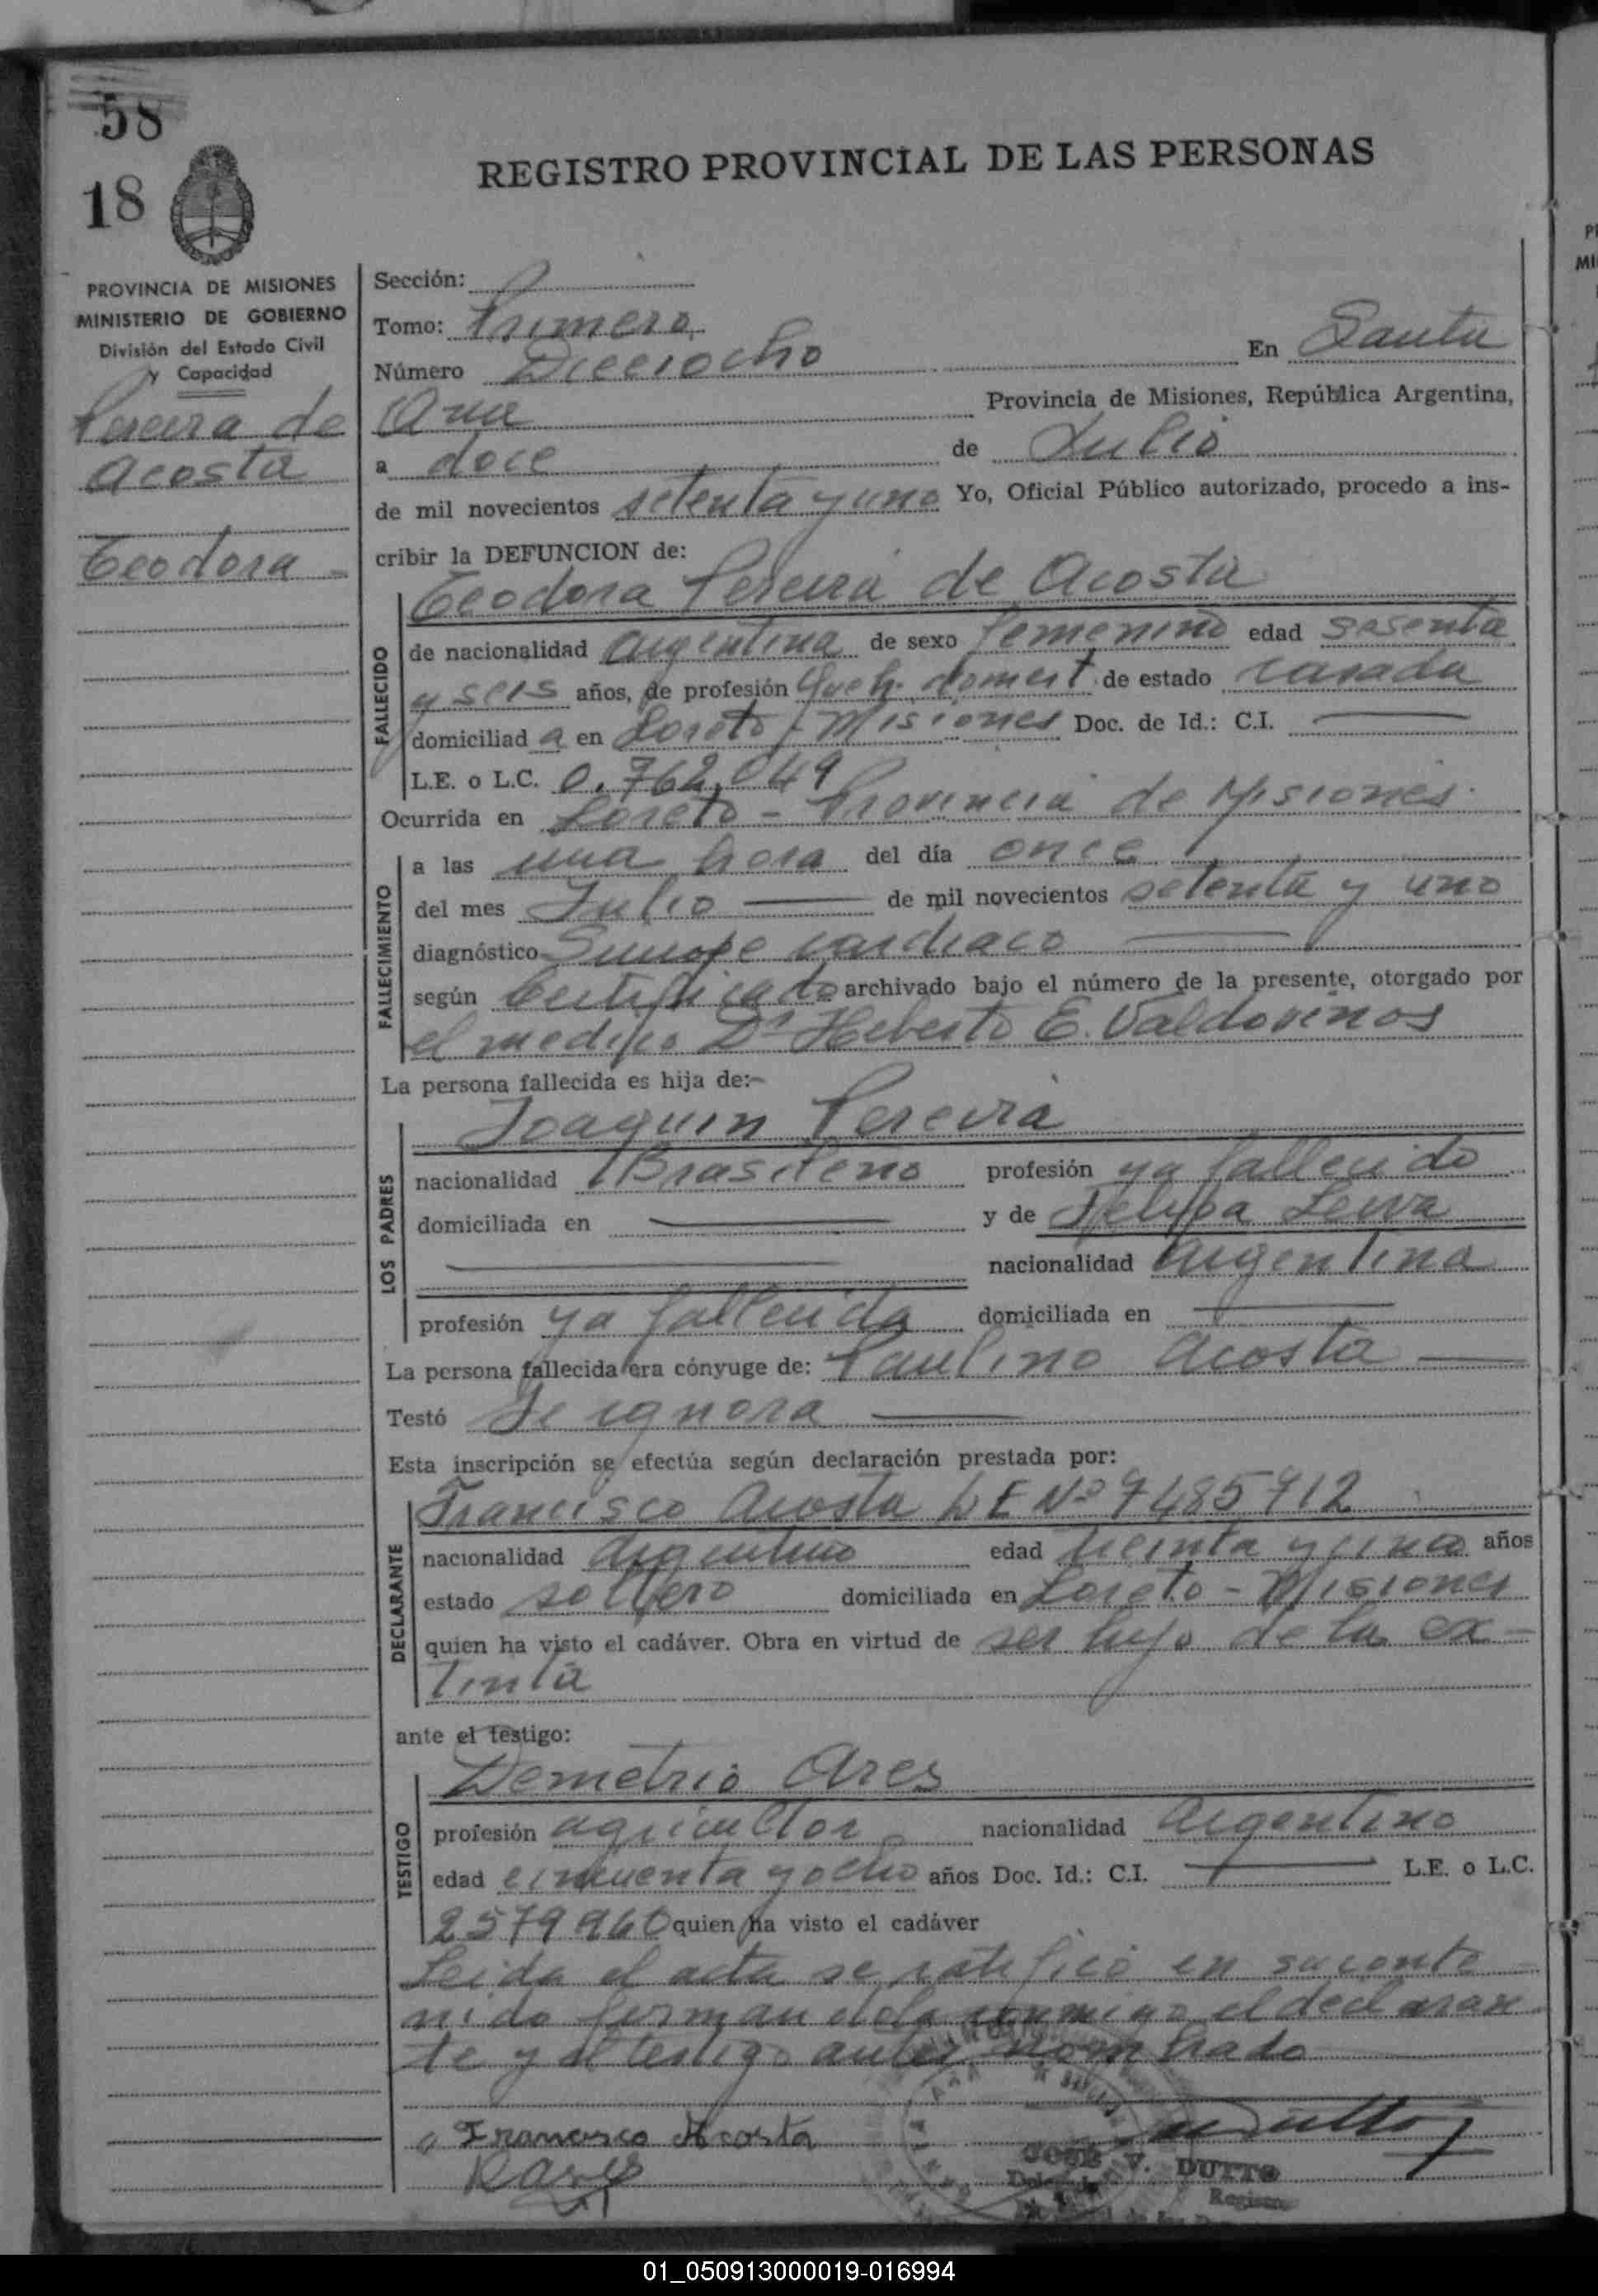 58
18
REGISTRO PROVINCIAL DE LAS PERSONAS
PROVINCIA DE MISIONES
MINISTERIO DE GOBIERNO
División del Estado Civil
y Capacidad
Pereira de
Acosta
Teodora -
Sección:
Tomo: Primero
Número Dieciocho En Santa
Ana Provincia de Misiones, República Argentina,
a doce de Julio
de mil novecientos setenta y uno Yo, Oficial Público autorizado, procedo a ins-
cribir la DEFUNCION de:
Teodora Pereira de Acosta
FALLECIDO
de nacionalidad argentina de sexo femenino edad sesenta
y seis años, de profesión Queh. domest. de estado casada
domiciliad a en Loreto - Misiones Doc. de Id.: C.I.
L.E. o L.C. 0.762.049
Ocurrida en Loreto - Provincia de Misiones.
FALLECIMIENTO
a las una hora del día once
del mes Julio de mil novecientos setenta y uno
diagnóstico Sincope cardiaco
según Certificado archivado bajo el número de la presente, otorgado por
el medico Dr Heberto E. Valdovinos
La persona fallecida es hija de:-
Joaquin Pereira
LOS PADRES
nacionalidad Brasileño profesión ya fallecido
domiciliada en y de Felipa Leiva
nacionalidad argentina
profesión ya fallecida domiciliada en
La persona fallecida era cónyuge de: Paulino Acosta
Testó Se ignora
Esta inscripción se efectúa según declaración prestada por:
Francisco Acosta L E Nº 7485712
DECLARANTE
nacionalidad argentino edad treinta y cinco años
estado soltero domiciliada en Loreto - Misiones
quien ha visto el cadáver. Obra en virtud de ser hijo de la ex-
tinta
ante el testigo:
Demetrio Ares
TESTIGO
profesión agricultor nacionalidad Argentino
edad cincuenta y ocho años Doc. Id.: C.I. L.E. o L.C.
2579960 quien ha visto el cadáver
Leida el acta se ratificó en su conte-
nido firmandola conmigo el declaran-
te y el testigo antes nombrado
Francisco Acosta
JOSE V. DUTTO
01_050913000019-016994